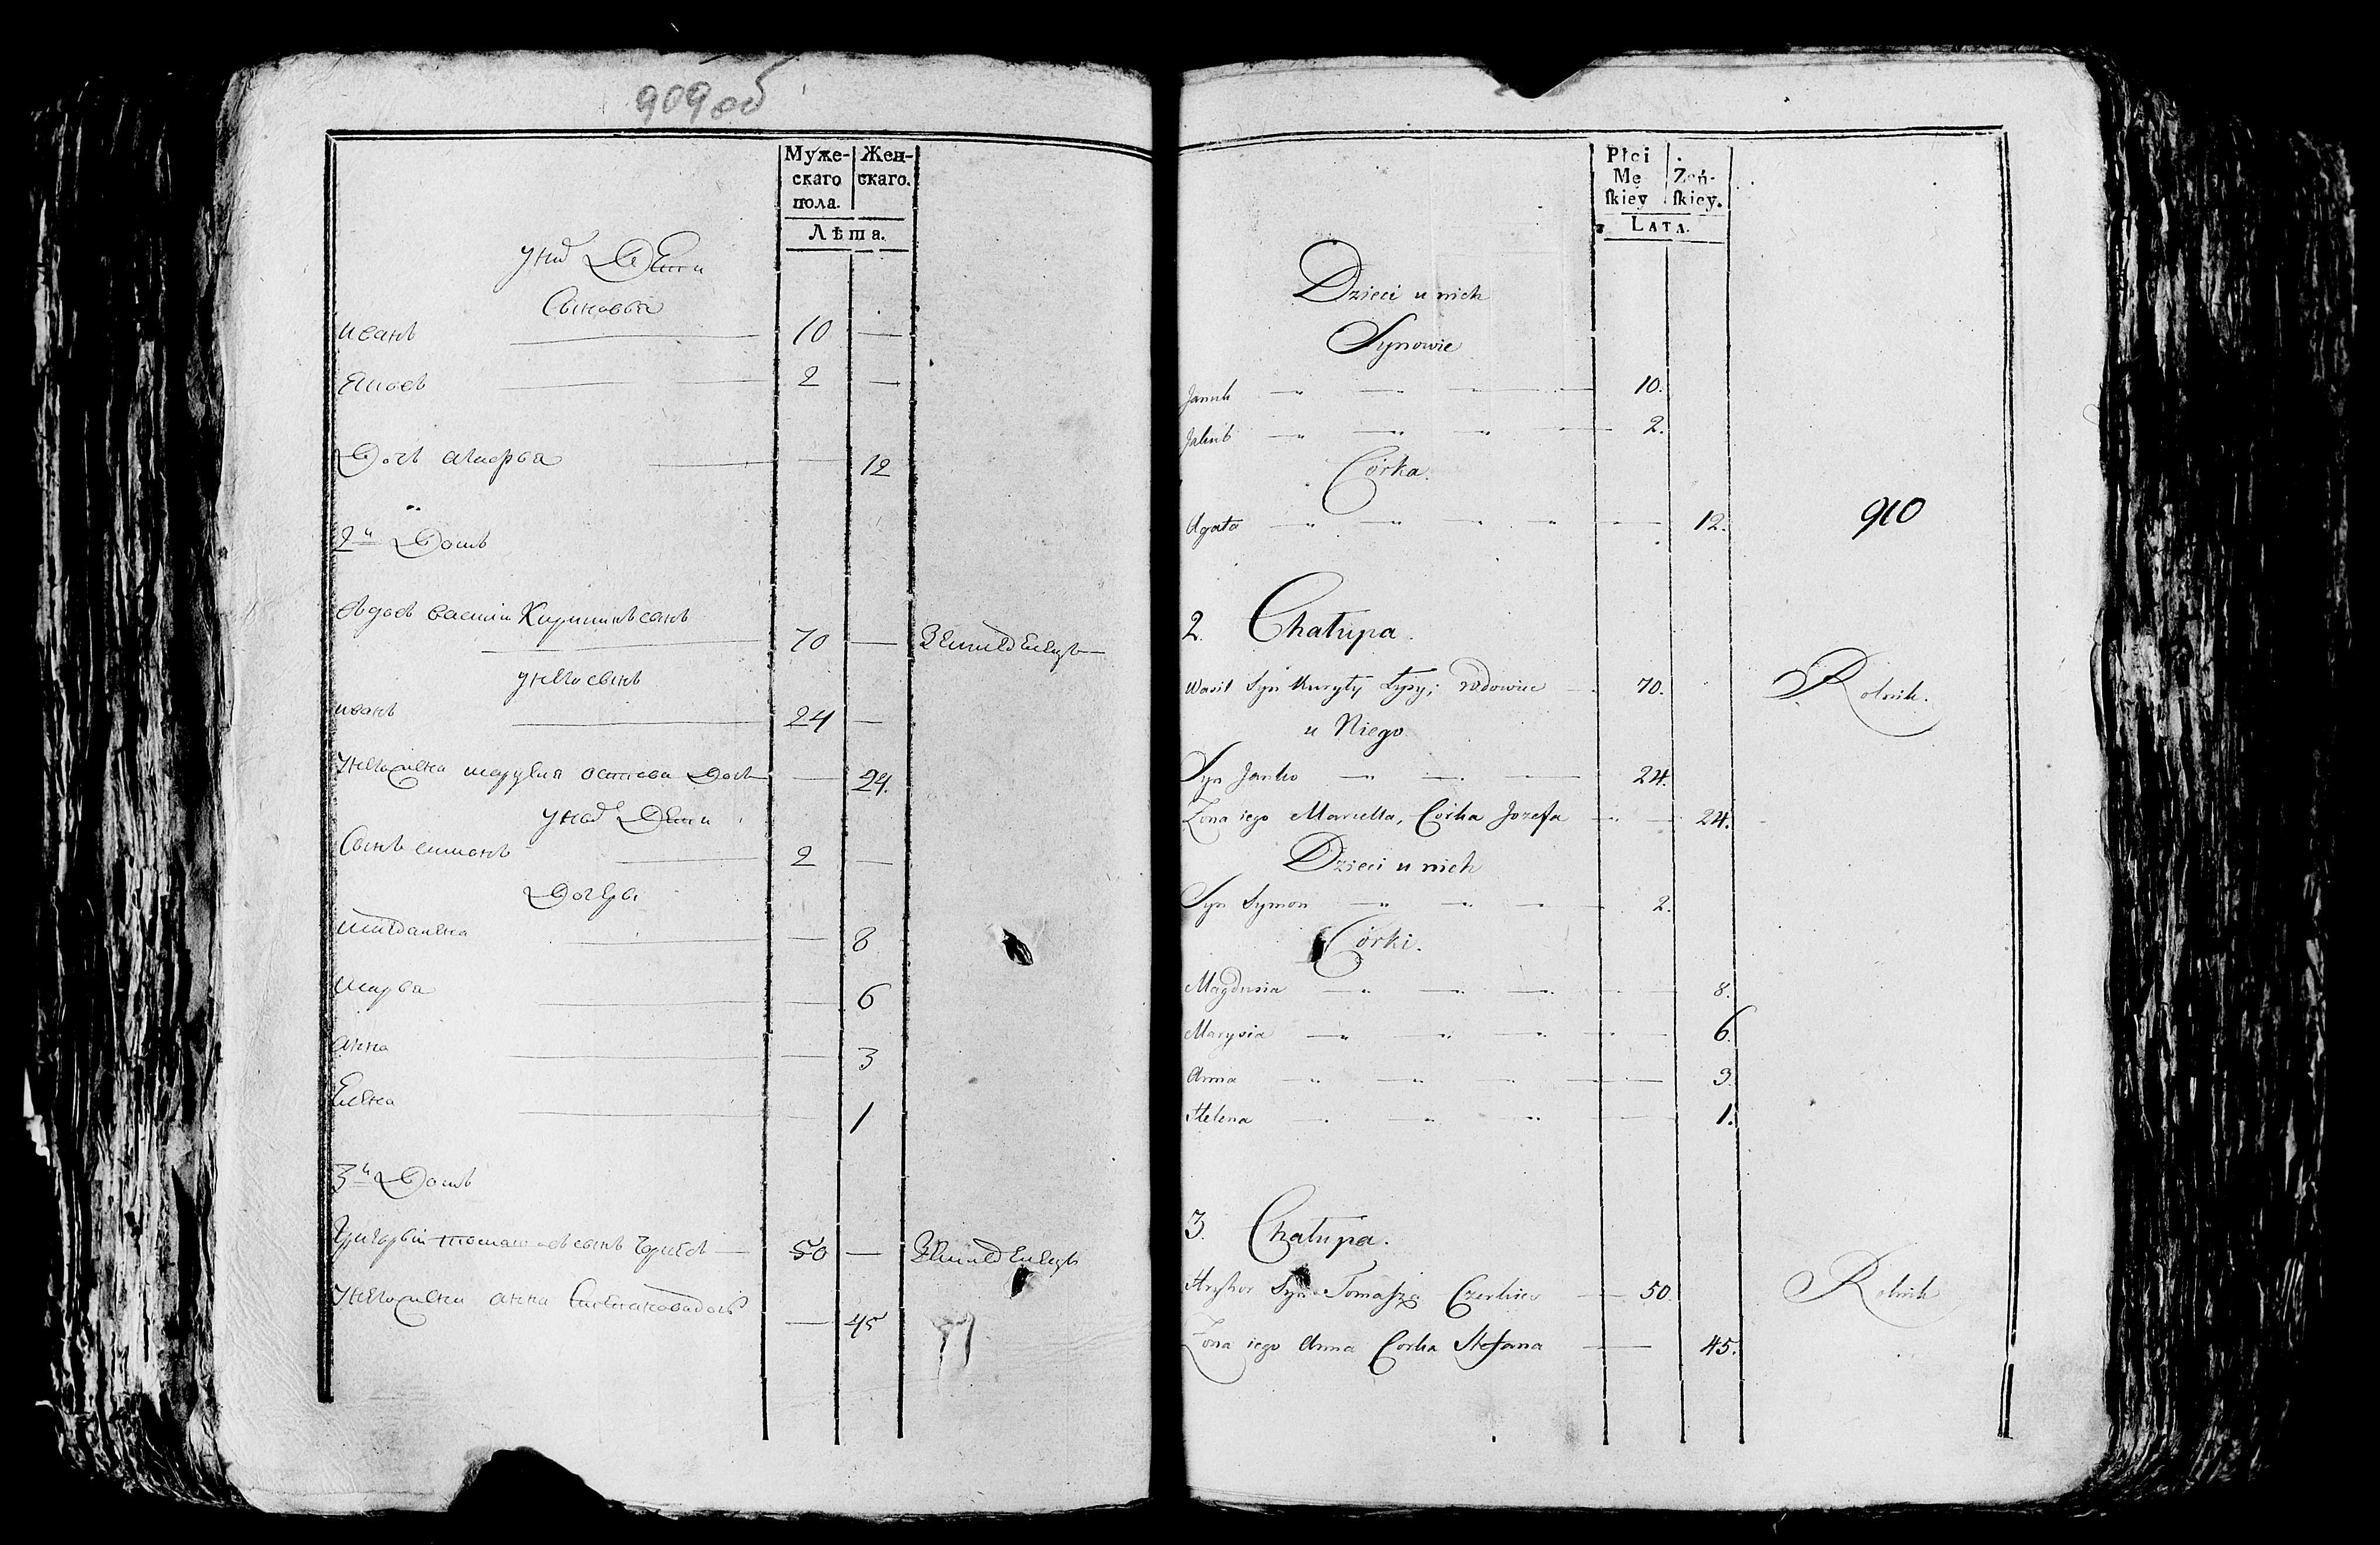 909 об
Муже-
скаго
пола.
Жен-
скаго.
Лѣта.
у них Дети
Сыновья
иванъ 10 —
2 —
Дочь — 12
2й Домъ
василий Кирилинъ сынъ
70 — Земледелецъ
у него сынъ
иванъ 24 —
у него жена Дочь — 24.
у них Дети
Сынъ симонъ 2 —
Дочери
— 8
марья — 6
анна — 3
Елена — 1
3й Домъ
Григорий сынъ 50 — Земледелецъ
у него жена анна — 45
Płci
Mę
ſkiey
Żeń-
ſkiey.
LATA.
Dzieci u nich
Synowie
Januk 10.
Jakub 2.
Córka.
Agata 12.
910
2. Chałupa.
Wasil Syn Kuryły Łysy, wdowiec 70. Rolnik.
u Niego
Syn Janko 24.
Żona iego Maruella, Córka Jozefa 24.
Dzieci u nich
Syn Symon 2.
Córki.
Magdusia 8.
Marysia 6.
Anna 3
Helena 1.
3. Chałupa.
Hryhor Syn Tomaſza 50. Rolnik
Żona iego Anna Corka Stefana 45.